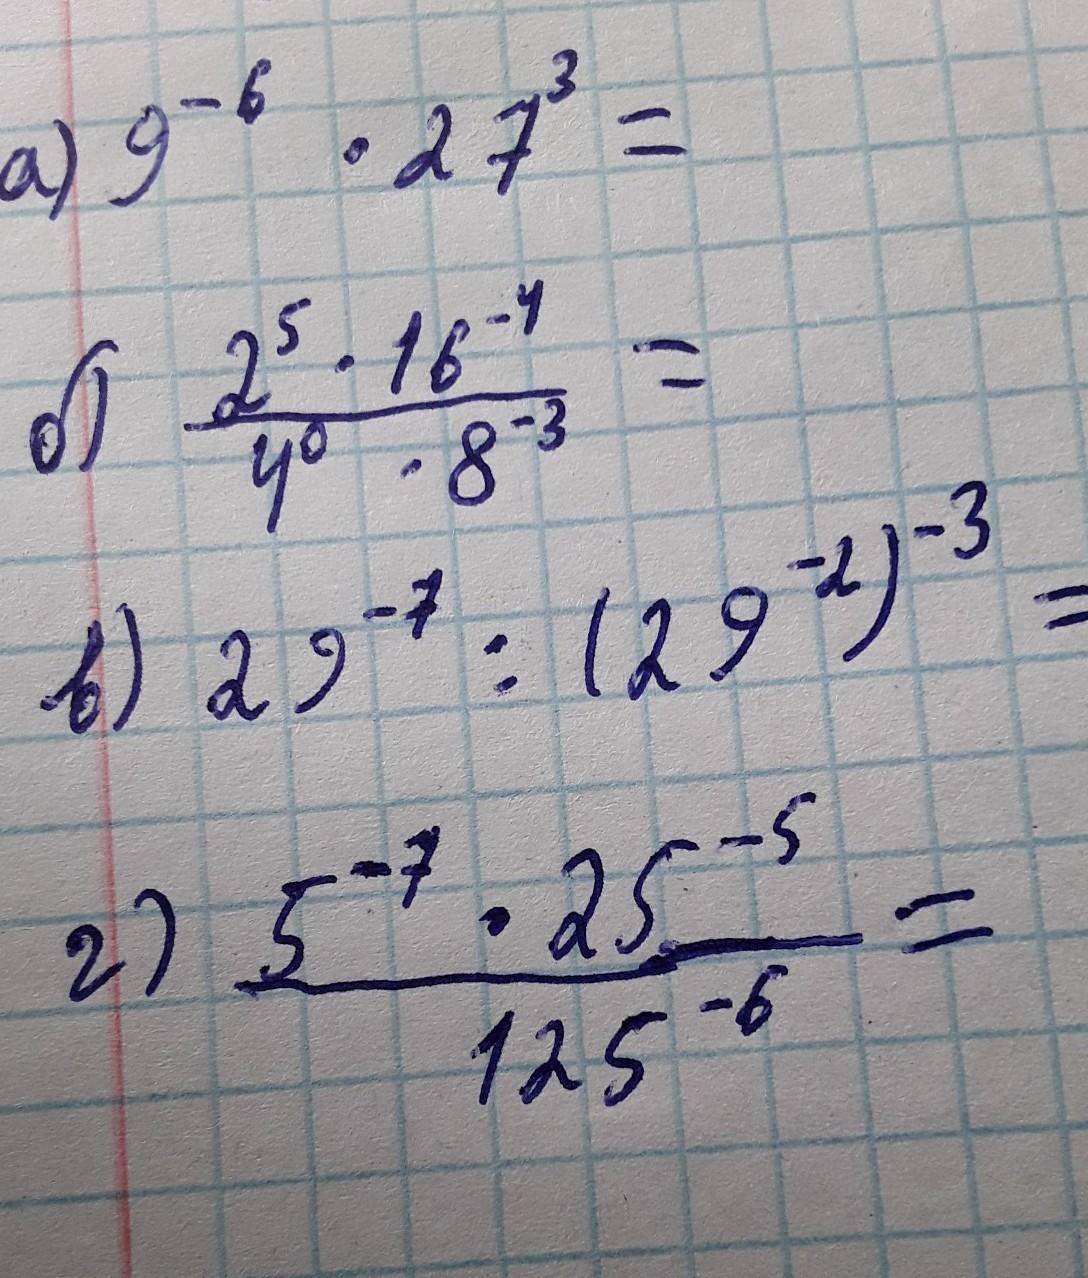 а) 9⁻⁶ · 27³ =
б) (2⁵ · 16⁻⁴) / (4⁰ · 8⁻³) =
в) 29⁻⁷ : (29⁻²)⁻³ =
г) (5⁻⁷ · 25⁻⁵) / 125⁻⁶ =